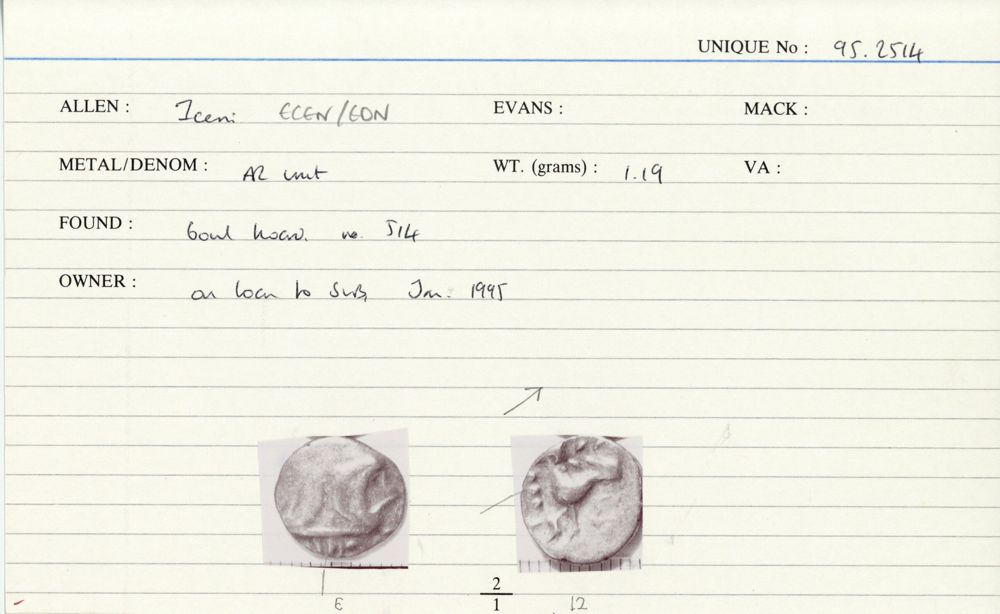 UNIQUE No : 95.2514
ALLEN : Iceni ECEN/EDN EVANS : MACK :
METAL/DENOM : AR unit WT. (grams) : 1.19 VA :
FOUND : bowl hoard. no. 514
OWNER : on loan to Jan. 1995
2
1
E 12